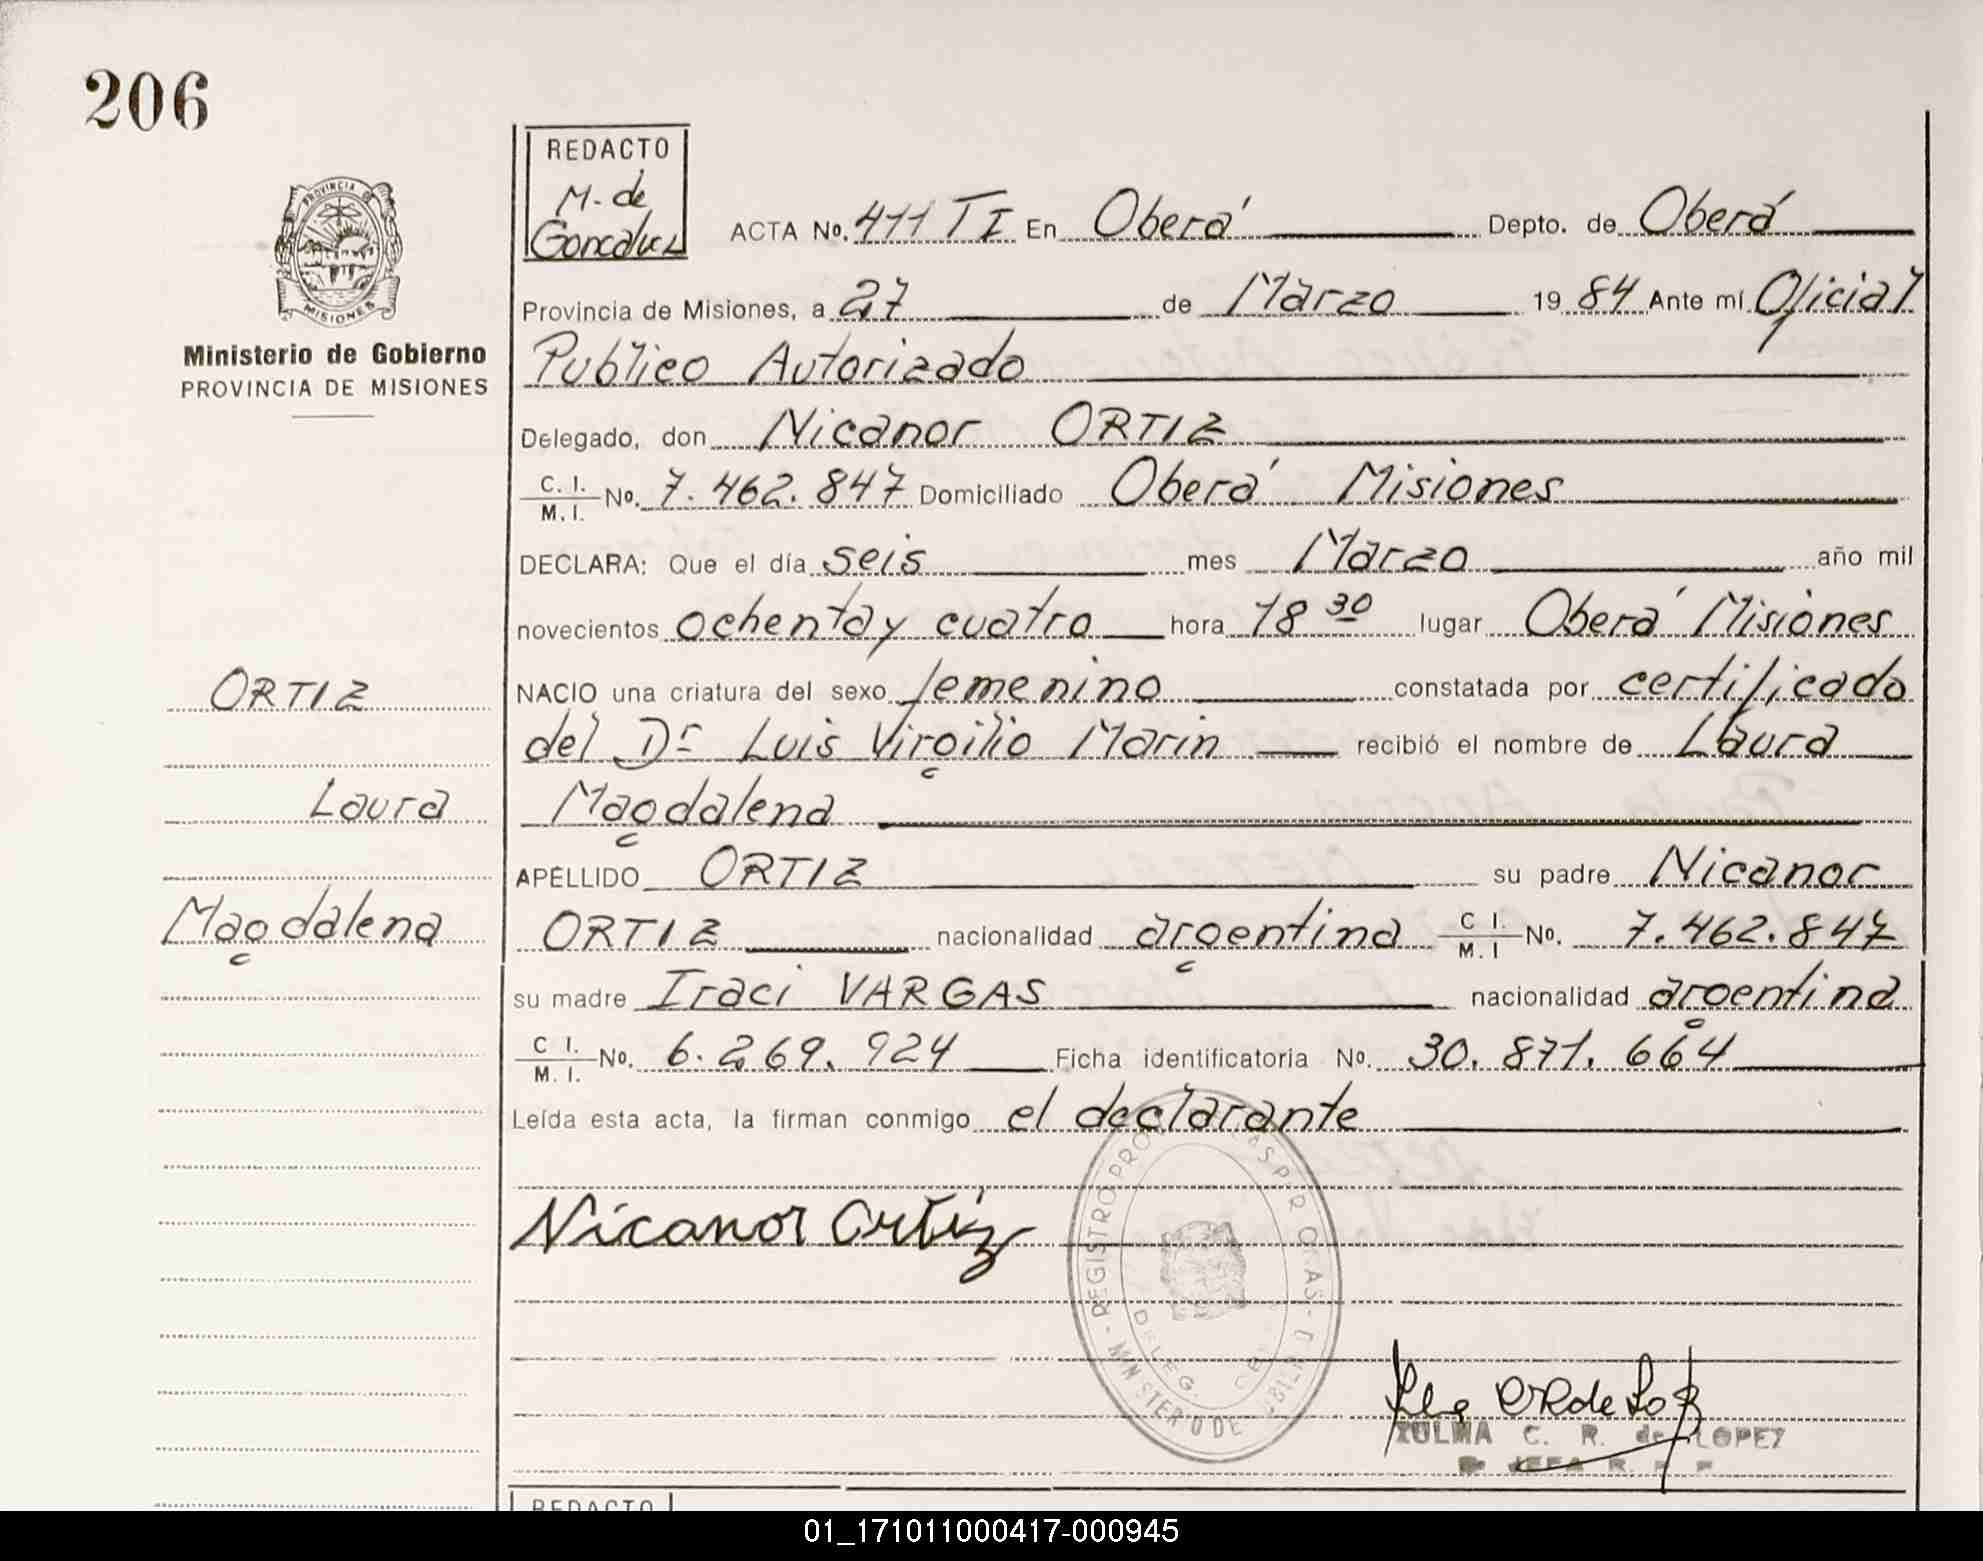 206
PROVINCIA DE
MISIONES
Ministerio de Gobierno
PROVINCIA DE MISIONES
ORTIZ
Laura
Magdalena
REDACTO
M. de
ACTA No. 411 TI En Oberá Depto. de Oberá
Provincia de Misiones, a 27 de Marzo 1984 Ante mí Oficial
Publico Autorizado
Delegado, don Nicanor ORTIZ
C. I. M. I. No. 7.462.847 Domiciliado Oberá Misiones
DECLARA: Que el día seis mes Marzo año mil
novecientos ochenta y cuatro hora 18 30 lugar Oberá Misiones
NACIO una criatura del sexo femenino constatada por certificado
del Dr Luis Virgilio Marin recibió el nombre de Laura
Magdalena
APELLIDO ORTIZ su padre Nicanor
ORTIZ nacionalidad argentina C I. M. I No. 7.462.847
su madre Iraci VARGAS nacionalidad argentina
C I. M. I. No. 6.269.924 Ficha identificatoria No. 30.871.664
Leída esta acta, la firman conmigo el declarante
Nicanor Ortiz
REGISTRO
DELEG.
MINISTERIO DE
ZULMA C. R. de LOPEZ
JEFA R.
REDACTO
01_171011000417-000945